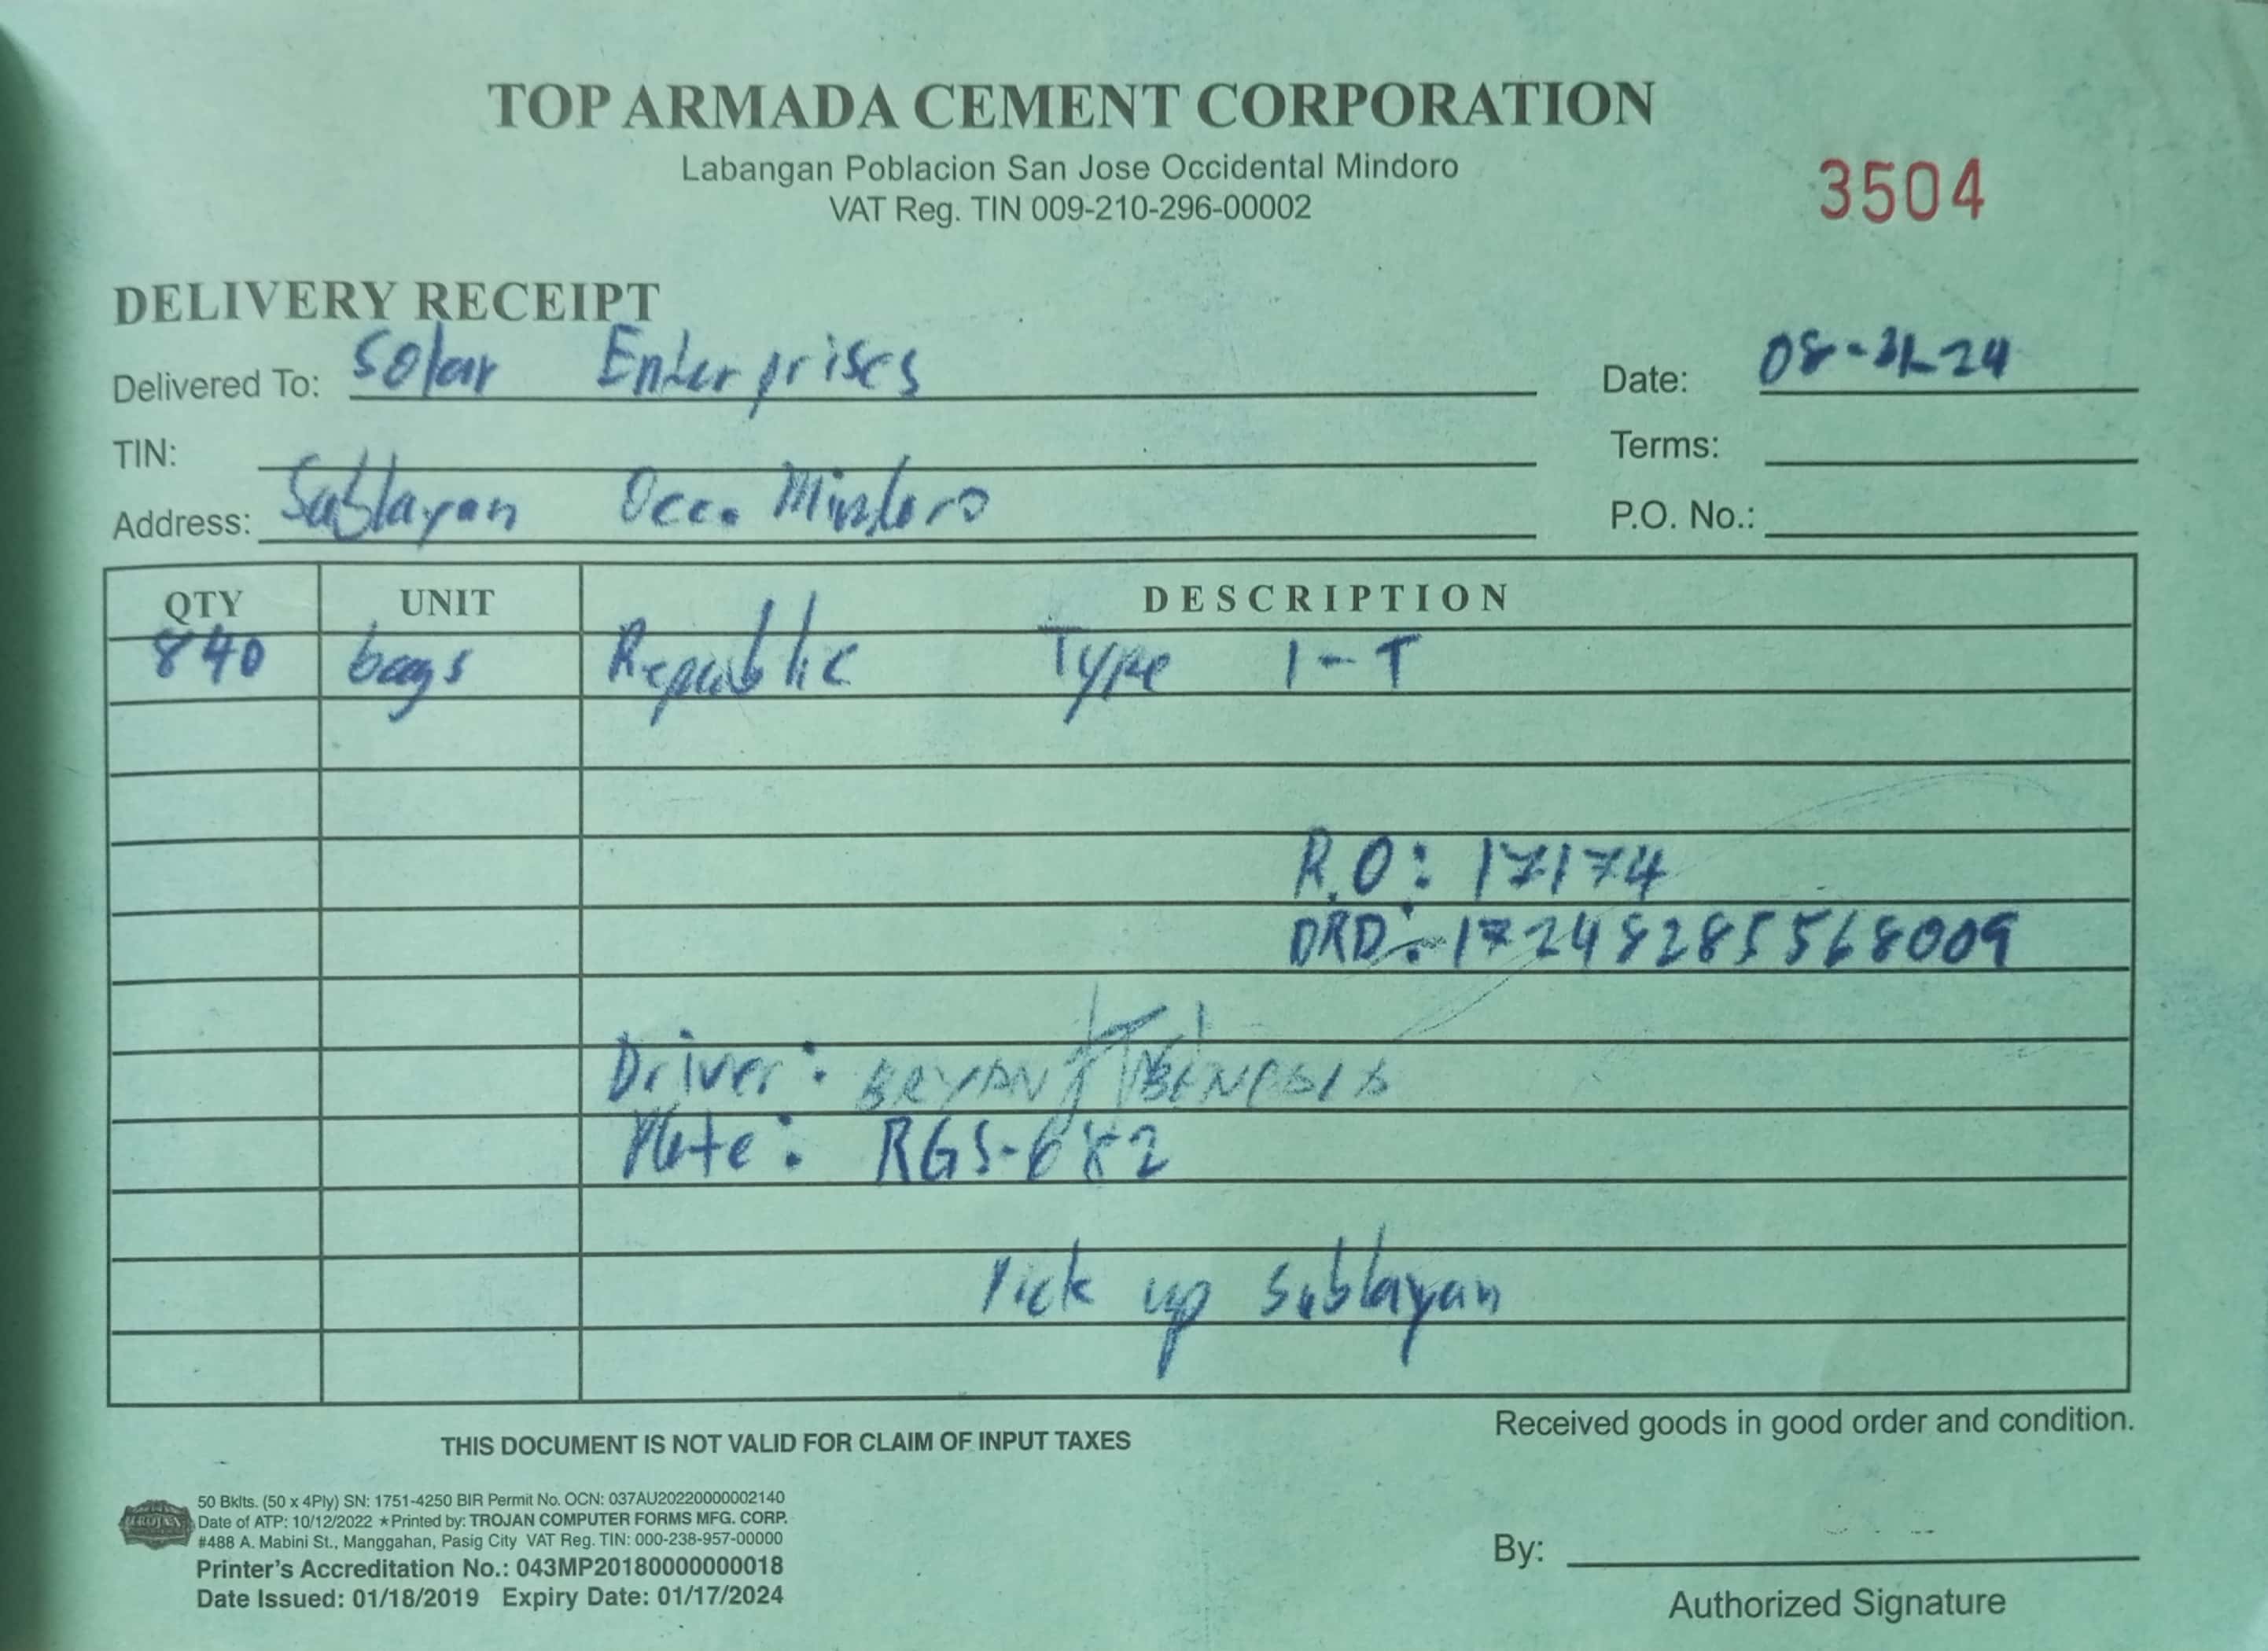 TOP ARMADA CEMENT CORPORATION
Labangan Poblacion San Jose Occidental Mindoro
VAT Reg. TIN 009-210-296-00002
3504
DELIVERY RECEIPT
Delivered To: Solar Enterprises
Date: 08- -24
TIN:
Terms:
Address: Sablayan Occ. Mindoro
P.O. No.:
QTY UNIT DESCRIPTION
840 bags Republic Type 1-T
R.O: 17174
DRD: 17248285568009
Driver: BRYAN
Plate: RGS-682
Pick up Sablayan
THIS DOCUMENT IS NOT VALID FOR CLAIM OF INPUT TAXES
Received goods in good order and condition.
TROJAN
50 Bklts. (50 x 4Ply) SN: 1751-4250 BIR Permit No. OCN: 037AU20220000002140
Date of ATP: 10/12/2022 ★Printed by: TROJAN COMPUTER FORMS MFG. CORP.
#488 A. Mabini St., Manggahan, Pasig City VAT Reg. TIN: 000-238-957-00000
Printer's Accreditation No.: 043MP20180000000018
Date Issued: 01/18/2019 Expiry Date: 01/17/2024
By:
Authorized Signature